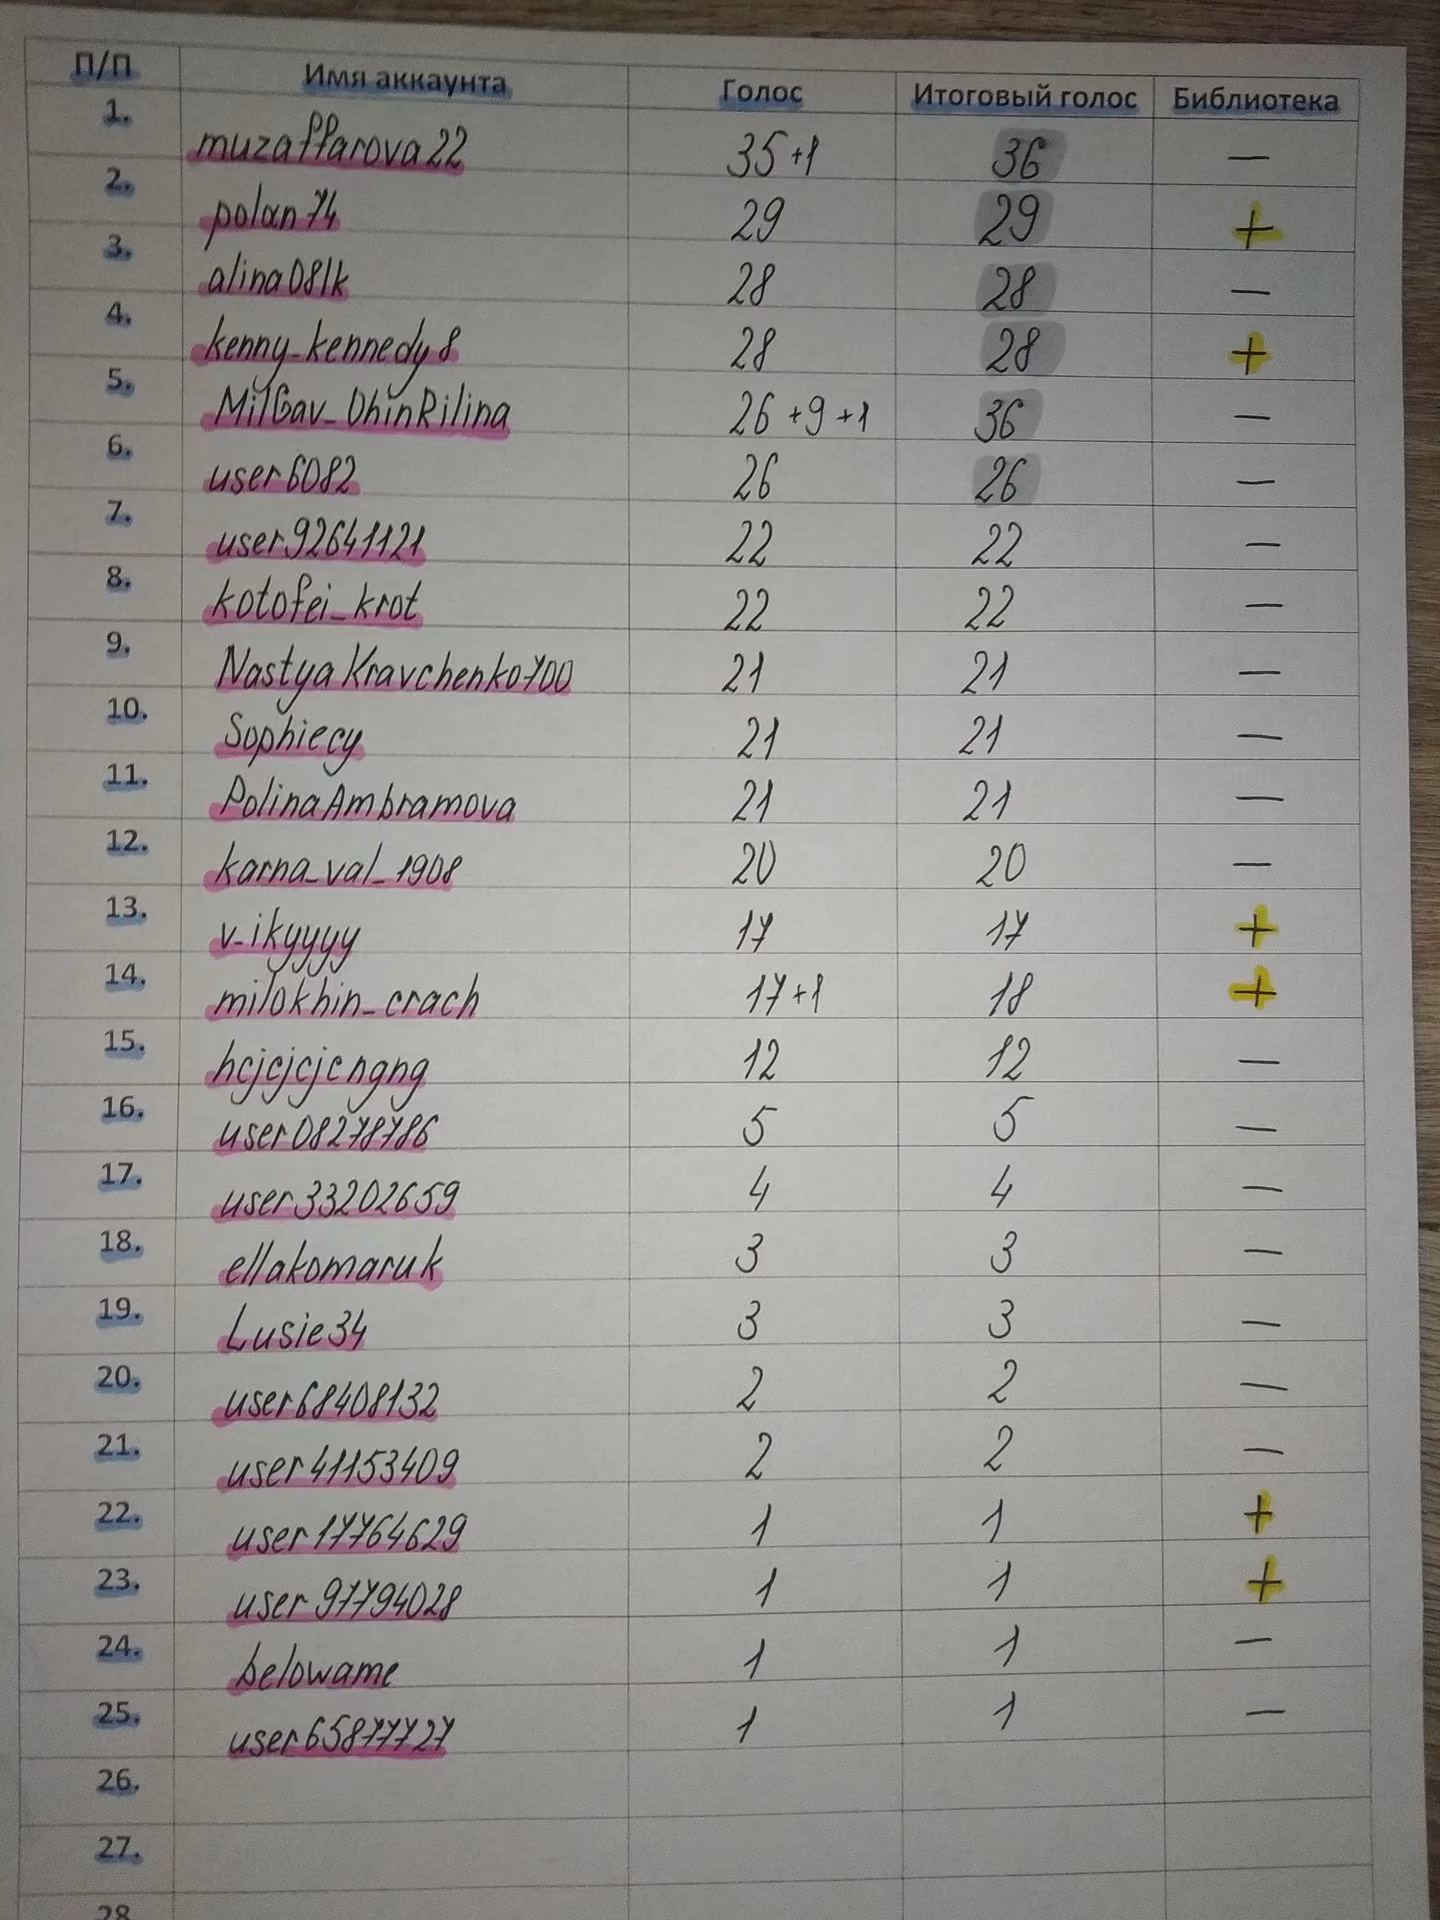 П/П Имя аккаунта Голос Итоговый голос Библиотека
1. muzaffarova22 35+1 36 —
2. polan74 29 29 +
3. alina08lk 28 28 —
4. kenny_kennedy8 28 28 +
5. MilGav_DhinRilina 26+9+1 36 —
6. user6082 26 26 —
7. user92641121 22 22 —
8. kotofei_krot 22 22 —
9. NastyaKravchenko700 21 21 —
10. Sophiecy 21 21 —
11. PolinaAmbramova 21 21 —
12. karna_val_1908 20 20 —
13. v_ikyyyy 17 17 +
14. milokhin_crach 17+1 18 +
15. hcjcjcjcngng 12 12 —
16. user08278786 5 5 —
17. user33202659 4 4 —
18. ellakomaruk 3 3 —
19. Lusie34 3 3 —
20. user68408132 2 2 —
21. user41153409 2 2 —
22. user17764629 1 1 +
23. user97794028 1 1 +
24. belowame 1 1 —
25. user65877727 1 1 —
26.
27.
28